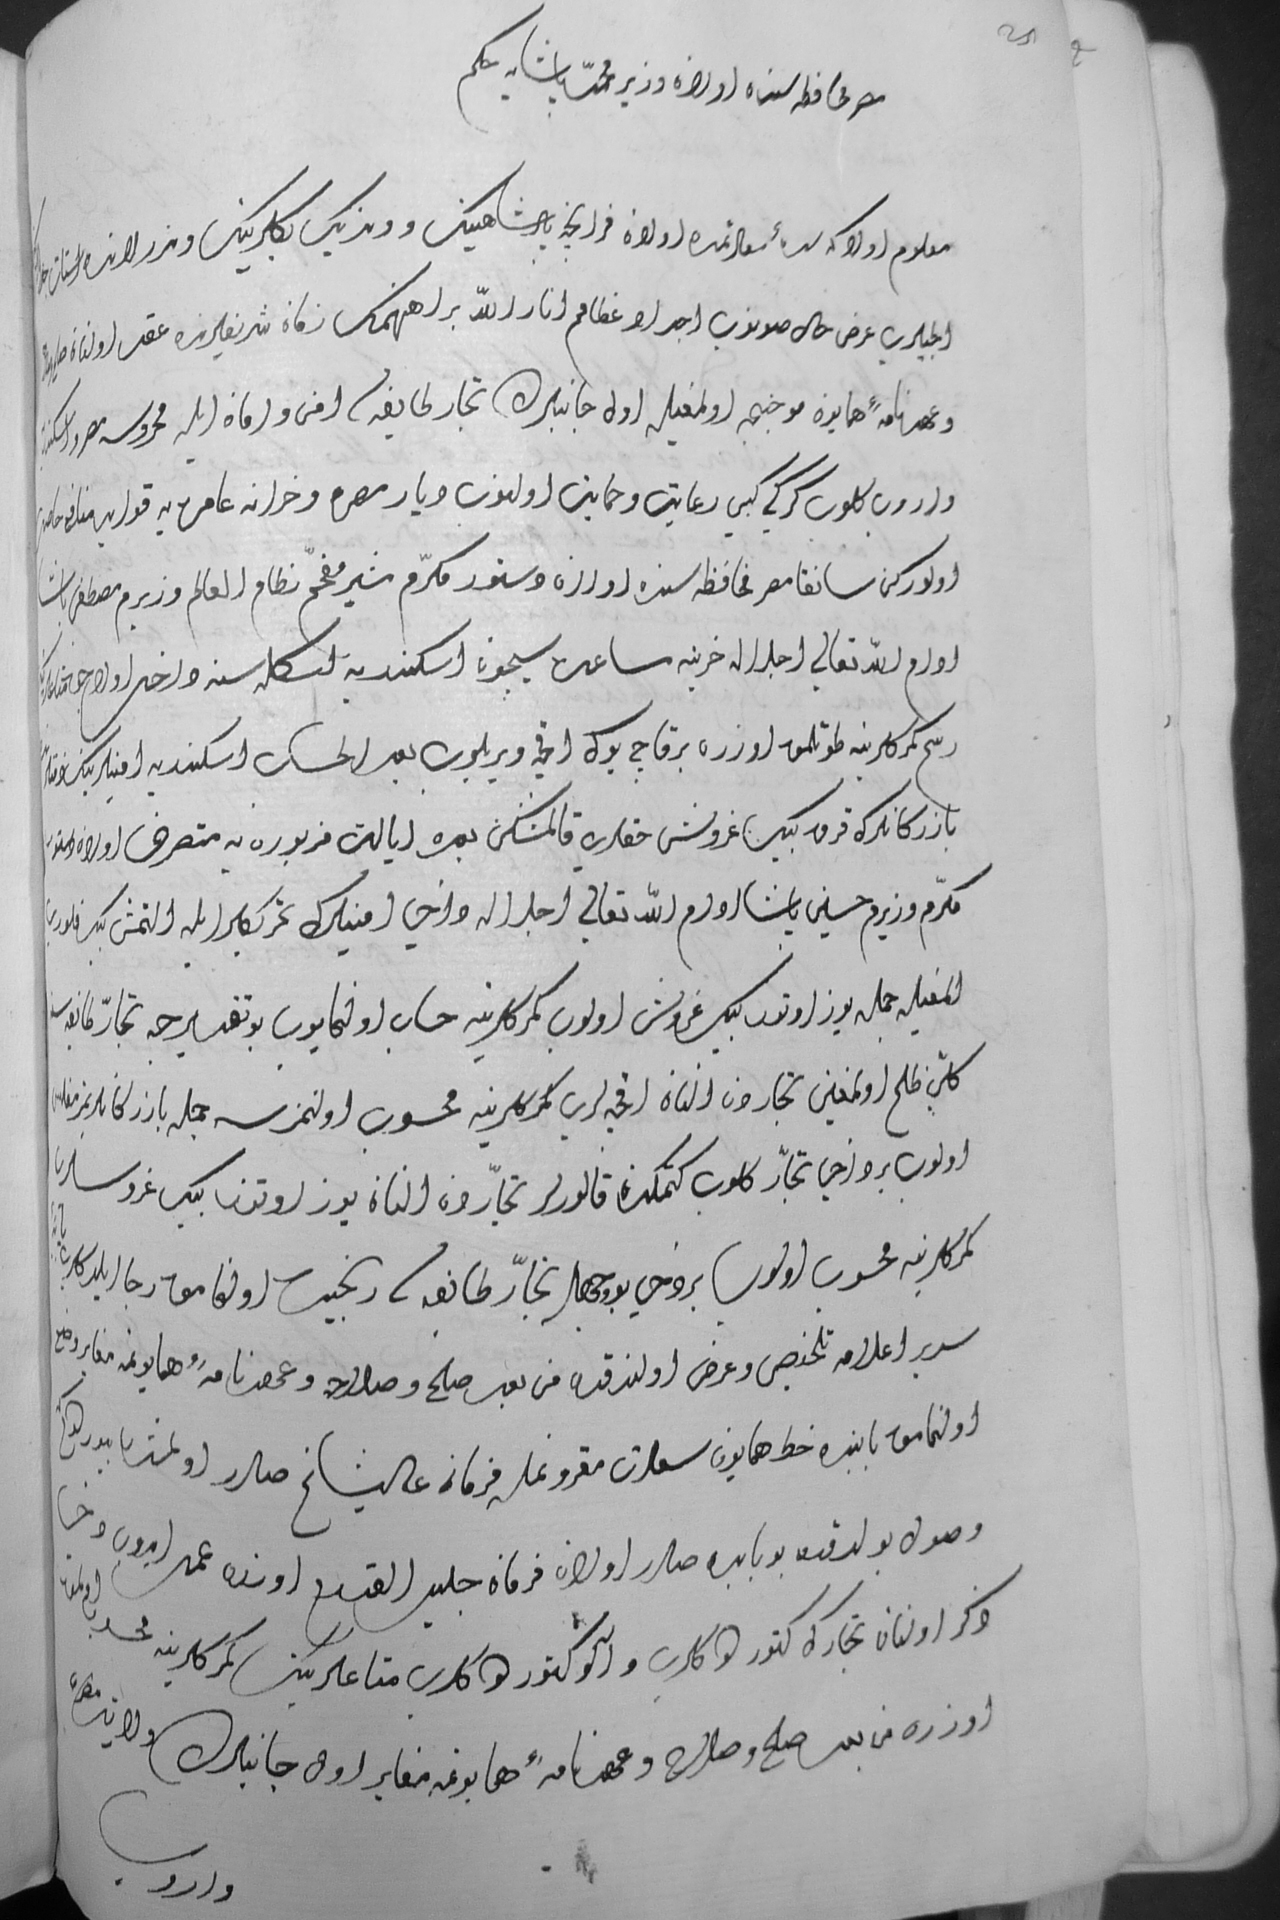 مصر محافظه سنده اولان وزیر محمد پاشایه حکم
معلوم اولا که سدهٔ سعادتمده اولان فرانچه پادشاهینک و وندیک بکلرینک و ندرلانده استات
ایلچیلری عرض حال صونوب اجداد عظامم انار الله براهینهمک زمان شریفلرنده عقد اولنان صلح
و عهدنامهٔ همایون موجبنجه اولمغیله اول جانبلرک تجار طایفه سی امن و امان ایله محروسه مصر و اسکندریه
واروب کلوب کرکی کبی رعایت و حمایت اولنوب دیار مصره و خزانه عامره یه قوللی منافع حاصل
اولورکن سابقا مصر محافظه سنده اولان دستور مکرم مشیر مفخم نظام العالم وزیرم مصطفی پاشا
ادام الله تعالی اجلاله خزینه مساعده سیچون اسکندریه اسکله سنه داخل اولان متاعلرینک
رسم کمرکلرینه طوتلمق اوزره برقاچ یوک اقچه ویریلوب بعد الحساب اسکندریه امینلرینک
بازرکانلرک قرق بیک غروش حقلری قالمشکن بعده ایالت مزبوره یه متصرف اولان دستور
مکرم وزیرم حسین پاشا ادام الله تعالی اجلاله داخی امینلرک تحریکلری ایله التمش بیک فلوری
المغیله جمله یوز اوتوز بیک غروش اولوب کمرکلرینه حساب اولنمایوب بو تقدیرجه تجار طایفه سنه
کلی ظلم اولمغین تجاردن النان اقچه لری کمرکلرینه محسوب اولنمزسه جمله بازرکانلریمز مفلس
اولوب بر داخی تجار کلوب کتمکدن قالورلر تجاردن النان یوز اوتوز بیک غروشلری
کمرکلرینه محسوب اولنوب بر داخی بو وجهله تجار طایفه سی رنجیده اولنمامق رجا ایلدکلری
سریر اعلامه تلخیص و عرض اولندقده من بعد صلح و صلاحه و عهدنامهٔ همایونمه مغایر وضع
اولنمامق بابنده خط همایون سعادت مقرونمله فرمان عالیشانم صادر اولمشدر بیوردم که
وصول بولدقده بو بابده صادر اولان فرمان جلیل القدرم اوزره عمل ایدوب دخی
ذکر اولنان تجارک کتوردوکلری و آلو کتوردوکلری متاعلرینک کمرکلرینه محسوب اولمق
اوزره من بعد صلح و صلاح و عهدنامهٔ همایونمه مغایر اول جانبلرک ولایت مصره
واروب